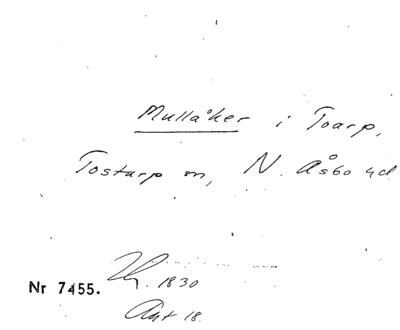 Mullåker i Toarp,
Tostarp m, N. Åsbo hd
1830
Nr 7455.
Akt 18.